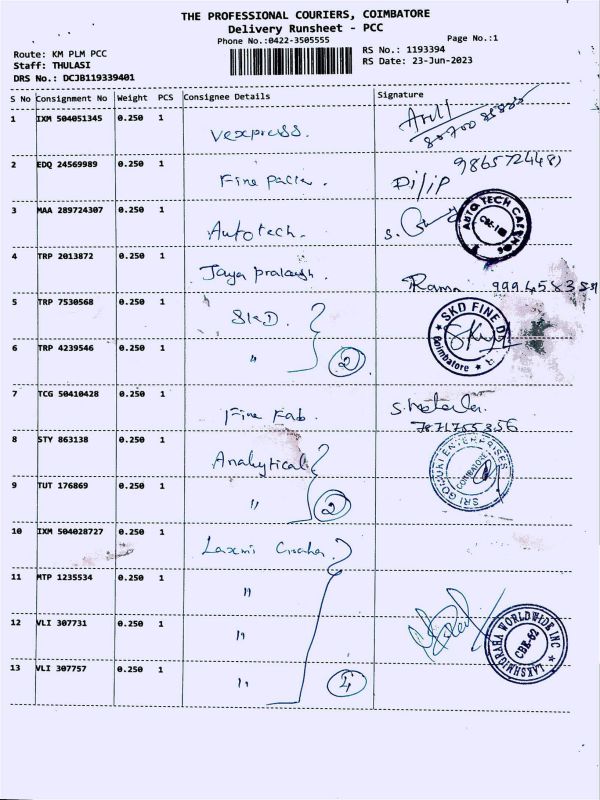 THE PROFESSIONAL COURIERS, COIMBATORE
Delivery Runsheet - PCC
Phone No.:0422-3505555
Page No.:1
Route: KM PLM PCC
Staff: THULASI
DRS No.: DCJB119339401
RS No.: 1193394
RS Date: 23-Jun-2023
S No Consignment No Weight PCS Consignee Details Signature
1 IXM 504051345 0.250 1 Vexpress.
2 EDQ 24569989 0.250 1 Fine Dilip
3 MAA 289724307 0.250 1 Autotech. S. AUTO TECH
4 TRP 2013872 0.250 1 Jaya prakash. Rama
5 TRP 7530568 0.250 1 SKD. SKD FINE Coimbatore
6 TRP 4239546 0.250 1 " 2
7 TCG 50410428 0.250 1 Fine Fab.
7871755356
8 STY 863138 0.250 1 Analytical SRI ENTERPRISES COIMBATORE
9 TUT 176869 0.250 1 " 2
10 IXM 504028727 0.250 1 Laxmi
11 MTP 1235534 0.250 1 "
12 VLI 307731 0.250 1 " LAKSHMIGRAHA WORLDWIDE INC CBE-62
13 VLI 307757 0.250 1 " 4